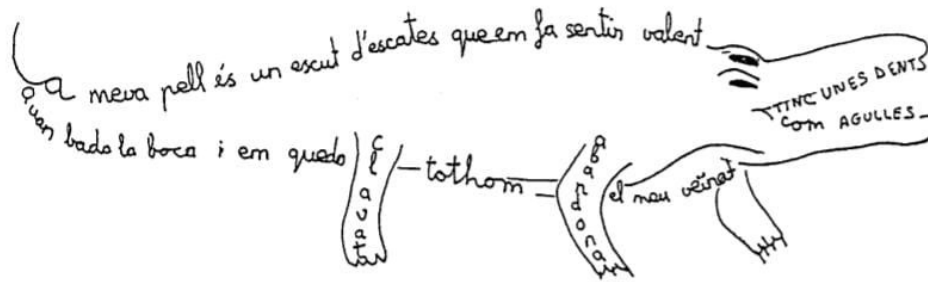 La meva pell és un escut d'escates que em fa sentir valent
TINC UNES DENTS
COM AGULLES
Quan bado la boca i em quedo clavat tothom abandona el meu veïnat